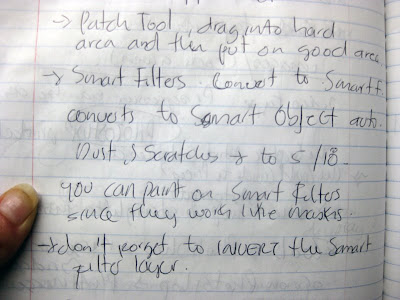 → Patch Tool, drag into hard
area and then put on good area
→ Smart Filters. Convert to Smart f.
converts to Smart Object auto.
Dust & Scratches → to 5/10.
you can paint on Smart Filters
since they work like masks.
→ don't forget to INVERT the Smart
filter layer.